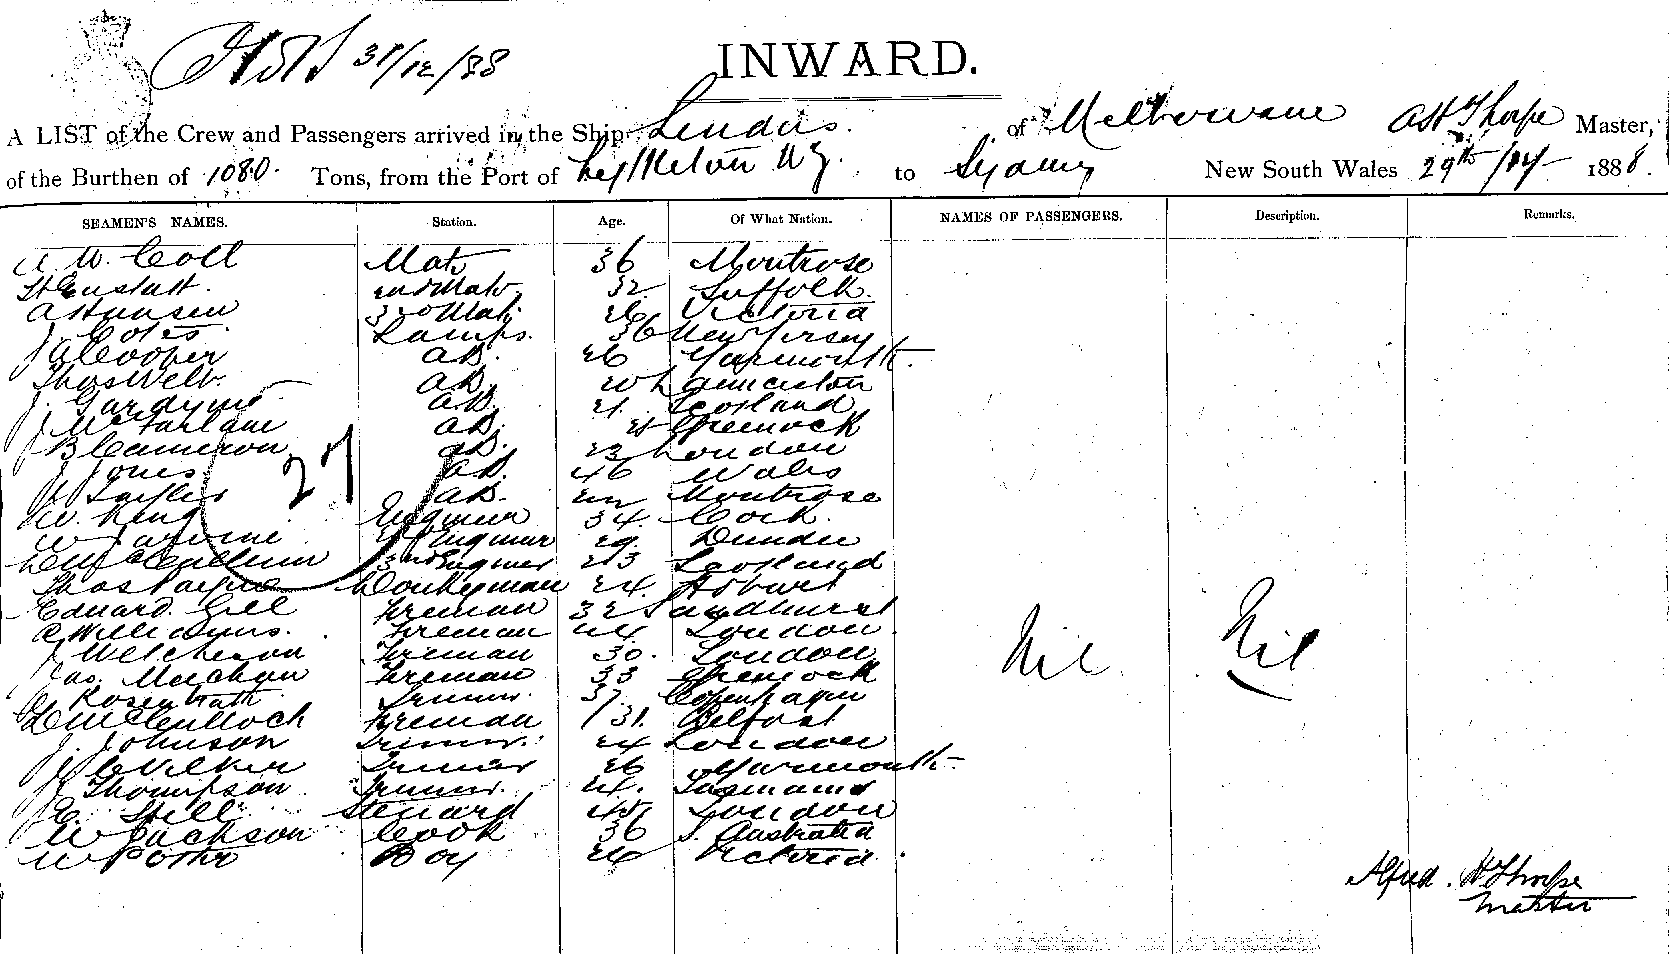 31/12/88
INWARD.
A LIST of the Crew and Passengers arrived in the Ship Lindus. of Melbourne A H Thorpe Master,
of the Burthen of 1080. Tons, from the Port of Lyttleton NZ. to Sydney New South Wales 29th 1888.
SEAMEN'S NAMES. Station. Age. Of What Nation. NAMES OF PASSENGERS. Description. Remarks.
W. Coll Mate 36 Montrose
2nd Mate 32 Suffolk.
A Hansen 3rd Mate 26 Victoria
J. Cotes Lamps. 36 New Jersey
J A Cooper AB. 26 Yarmouth.
Thos Welb. AB. Launceston
J. Gardyne AB. 21. Scotland
J McFarlane AB. Greenock
B Cameron AB. 23 London
J Jones AB. 46 Wales
AB. Montrose
W. King Engineer 34. Cork.
W Jardine 2nd Engineer 29. Dundee
3rd Engineer 23 Scotland
Thos Payne Donkeyman 24. Hobart
Edward Gill Fireman 32 Sandhurst
Williams. Fireman 24 London
J Fireman 30. London
Jas. Meighan Fireman 33 Greenock
Rosenkrath Trimmer. 37 Copenhagen
D McCullock Fireman 31. Belfast
J. Johnson Trimmer. 24 London
Trimmer 26 Yarmouth
J Thompson Trimmer. 24. Tasmania
Still Steward London
W Jackson Cook 36 S. Australia
W Potter Boy Victoria.
27
Nil Nil
Alfred. H Thorpe
Master